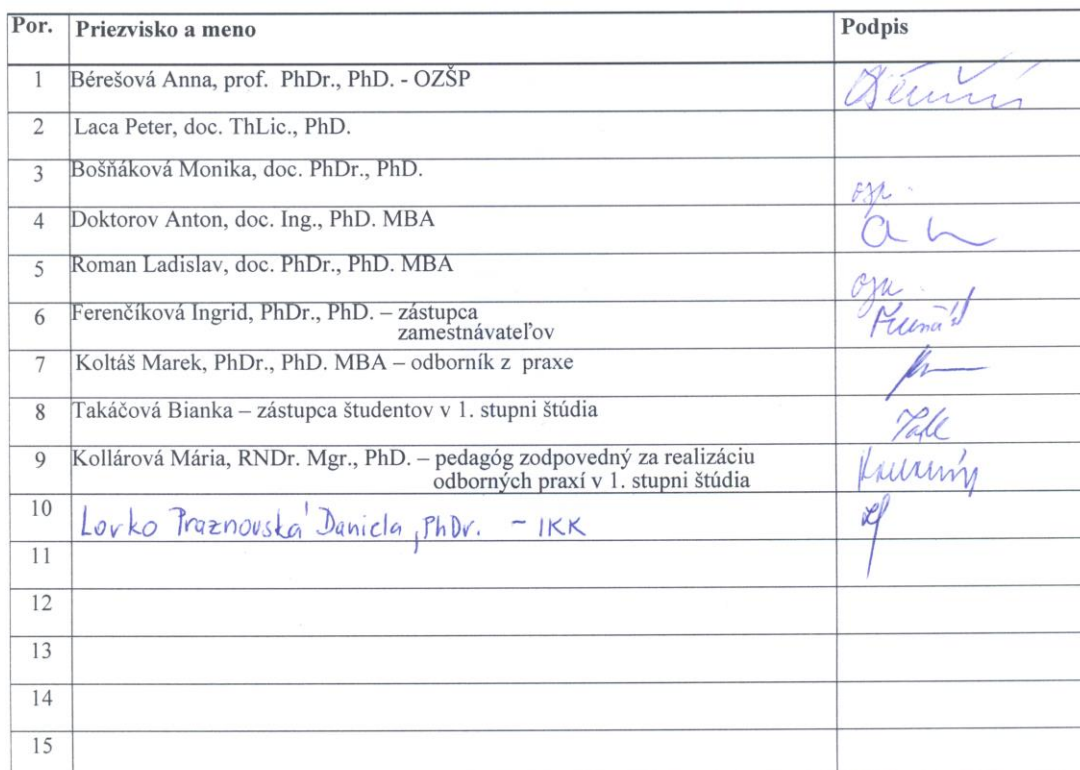 Por. Priezvisko a meno Podpis
1 Bérešová Anna, prof. PhDr., PhD. - OZŠP
2 Laca Peter, doc. ThLic., PhD.
3 Bošňáková Monika, doc. PhDr., PhD.
4 Doktorov Anton, doc. Ing., PhD. MBA
5 Roman Ladislav, doc. PhDr., PhD. MBA
6 Ferenčíková Ingrid, PhDr., PhD. – zástupca
zamestnávateľov
7 Koltáš Marek, PhDr., PhD. MBA – odborník z praxe
8 Takáčová Bianka – zástupca študentov v 1. stupni štúdia
9 Kollárová Mária, RNDr. Mgr., PhD. – pedagóg zodpovedný za realizáciu
odborných praxí v 1. stupni štúdia
10 Lovko Praznovská Daniela, PhDr. - IKK
11
12
13
14
15